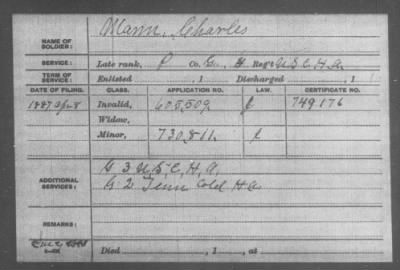 NAME OF SOLDIER: Mann, Charles
SERVICE: Late rank, P Co. G, H Reg't U.S.C.H.A.
TERM OF SERVICE: Enlisted , 1 Discharged , 1
DATE OF FILING. CLASS. APPLICATION NO. LAW. CERTIFICATE NO.
1887 Apr 8 Invalid, 605,509 749,176
Widow,
Minor, 730,811
ADDITIONAL SERVICES: G 3 U.S.C.H.A.
G 2 Tenn Cold H.A.
REMARKS:
Died , 1 , at